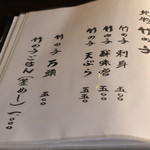 地物 竹の子
竹の子 刺身
竹の子 酢味噌 五五〇
竹の子 天ぷら 五五〇
竹の子 万頭 五〇〇
竹の子ごはん(釜めし) 一〇〇〇